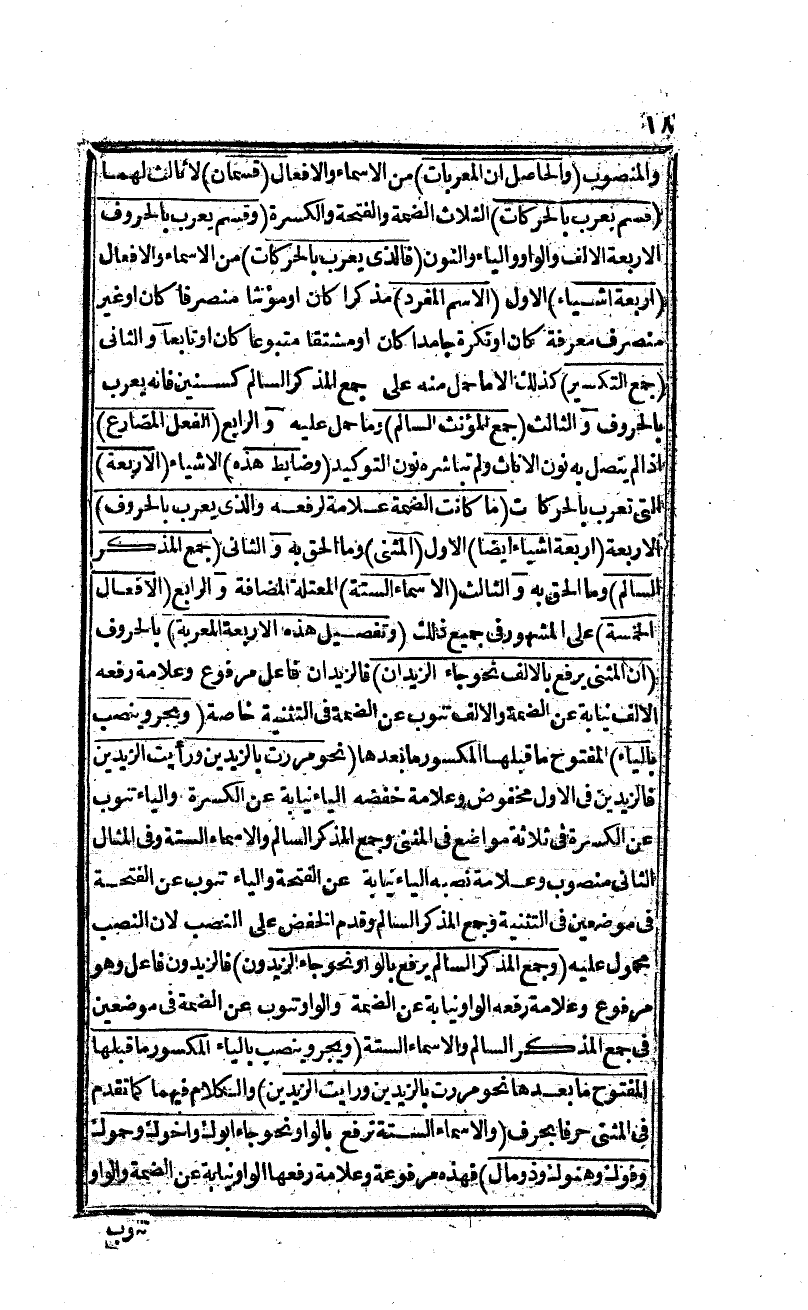 ١٨
والمنصوب (والحاصل ان المعربات) من الاسماء والافعال (قسمان) لا ثالث لهما
(قسم يعرب بالحركات) الثلاث الضمة والفتحة والكسرة (وقسم يعرب بالحروف
الاربعة الالف والواو والياء والنون (فالذى يعرب بالحركات) من الاسماء والافعال
(اربعة اشياء) الاول (الاسم المفرد) مذكرا كان اومؤنثا منصرفا كان اوغير
منصرف معرفة كان اونكرة جامدا كان اومشتقا متبوعا كان اوتابعا و الثانى
(جمع التكسير) كذلك الا ما حمل منه على جمع المذكر السالم كسنين فانه يعرب
بالحروف و الثالث (جمع المؤنث السالم) وما حمل عليه و الرابع (الفعل المضارع)
اذا لم يتصل به نون الاناث ولم تباشره نون التوكيد (وضابط هذه) الاشياء (الاربعة)
التى تعرب بالحركات (ما كانت الضمة علامة لرفعه والذى يعرب بالحروف)
الاربعة (اربعة اشياء ايضا) الاول (المثنى) وما الحق به و الثانى (جمع المذكر
السالم) وما الحق به و الثالث (الاسماء الستة) المعتلة المضافة و الرابع (الافعال
الخمسة) على المشهور فى جميع ذلك (وتفصيل هذه الاربعة المعربة) بالحروف
(ان المثنى يرفع بالالف نحو جاء الزيدان) فالزيدان فاعل مرفوع وعلامة رفعه
الالف نيابة عن الضمة والالف تنوب عن الضمة فى التثنية خاصة (ويجر وينصب
بالياء) المفتوح ما قبلها المكسور ما بعدها (نحو مررت بالزيدين ورأيت الزيدين
فالزيدين فى الاول مخفوض وعلامة خفضه الياء نيابة عن الكسرة والياء تنوب
عن الكسرة فى ثلاثة مواضع فى المثنى وجمع المذكر السالم والاسماء الستة وفى المثال
الثانى منصوب وعلامة نصبه الياء نيابة عن الفتحة والياء تنوب عن الفتحة
فى موضعين فى التثنية وجمع المذكر السالم وقدم الخفض على النصب لان النصب
محمول عليه (وجمع المذكر السالم يرفع بالواو نحو جاء الزيدون) فالزيدون فاعل وهو
مرفوع وعلامة رفعه الواو نيابة عن الضمة والواو تنوب عن الضمة فى موضعين
فى جمع المذكر السالم والاسماء الستة (ويجر وينصب بالياء المكسور ما قبلها
المفتوح ما بعدها نحو مررت بالزيدين ورايت الزيدين) والكلام فيهما كما تقدم
فى المثنى حرفا بحرف (والاسماء الستة ترفع بالواو نحو جاء ابوك واخوك وحموك
وفوك وهنوك وذو مال) فهذه مرفوعة وعلامة رفعها الواو نيابة عن الضمة والواو
تنوب